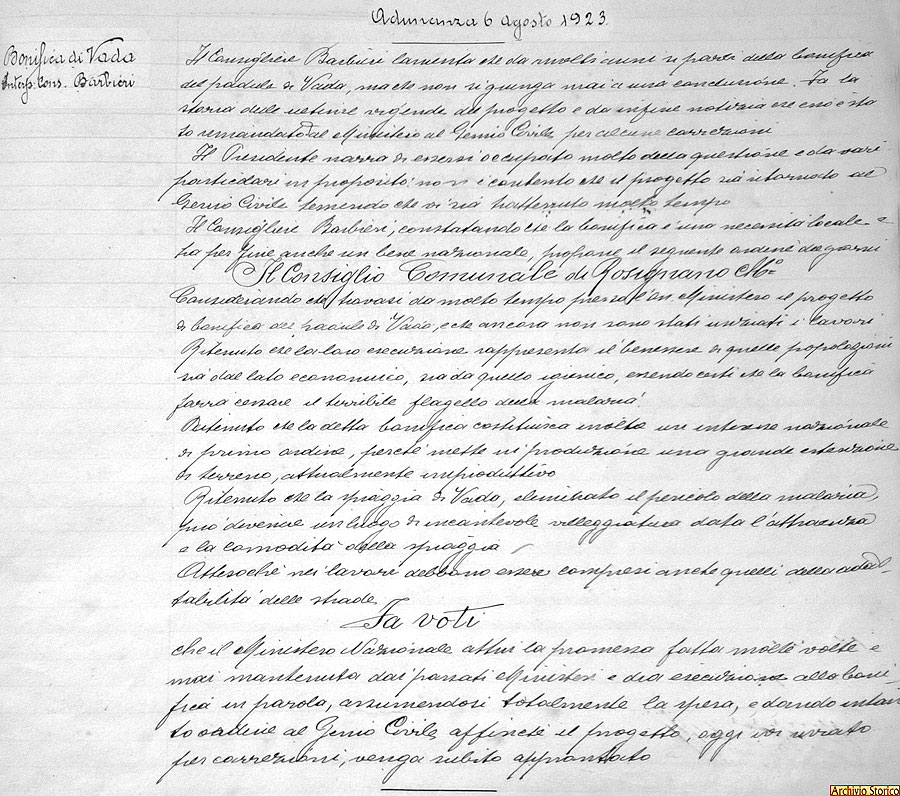 Adunanza 6 Agosto 1923
Bonifica di Vada
Interp. Cons. Barbieri
Il Consigliere Barbieri lamenta che da molti anni si parli della bonifica
del padule di Vada, ma che non si giunga mai a una conclusione. Fa la
storia delle vicende del progetto e da infine notizia che esso è sta
to rimandato dal Ministero al Genio Civile per alcune correzioni
Il Presidente narra di essersi occupato molto della questione e da vari
particolari in proposito: non è contento che il progetto sia ritornato al
Genio Civile temendo che vi sia trattenuto molto tempo
Il Consigliere Barbieri, constatando che la bonifica è una necessità locale e
ha per fine anche un bene nazionale, propone il seguente ordine del giorno
Il Consiglio Comunale di Rosignano Mo
Considerando che trovasi da molto tempo presso l'On Ministero il progetto
di bonifica del padule di Vada, e che ancora non sono stati iniziati i lavori
Ritenuto che la loro esecuzione rappresenta il benessere di quelle popolazioni
sia dal lato economico, sia da quello igienico, essendo certi che la bonifica
farra cessare il terribile flagello della malaria
Ritenuto che la detta bonifica costituisca inoltre un interesse nazionale
di primo ordine, perché mette in produzione una grande estensione
di terreno, attualmente improduttivo
Ritenuto che la spiaggia di Vada, eliminato il pericolo della malaria,
può divenire un luogo di incantevole villeggiatura data l'attraenza
e la comodità della spiaggia
Attesoché nei lavori debbono essere compresi anche quelli della
tabilità delle strade
Fa voti
che il Ministero Nazionale attui la promessa fatta molte volte e
mai mantenuta dai passati Ministeri e dia esecuzione alla boni
fica in parola, assumendosi totalmente la spesa, e dando intan
to ordine al Genio Civile affinché il progetto, oggi ivi inviato
per correzioni, venga subito approntato
Archivio Storico